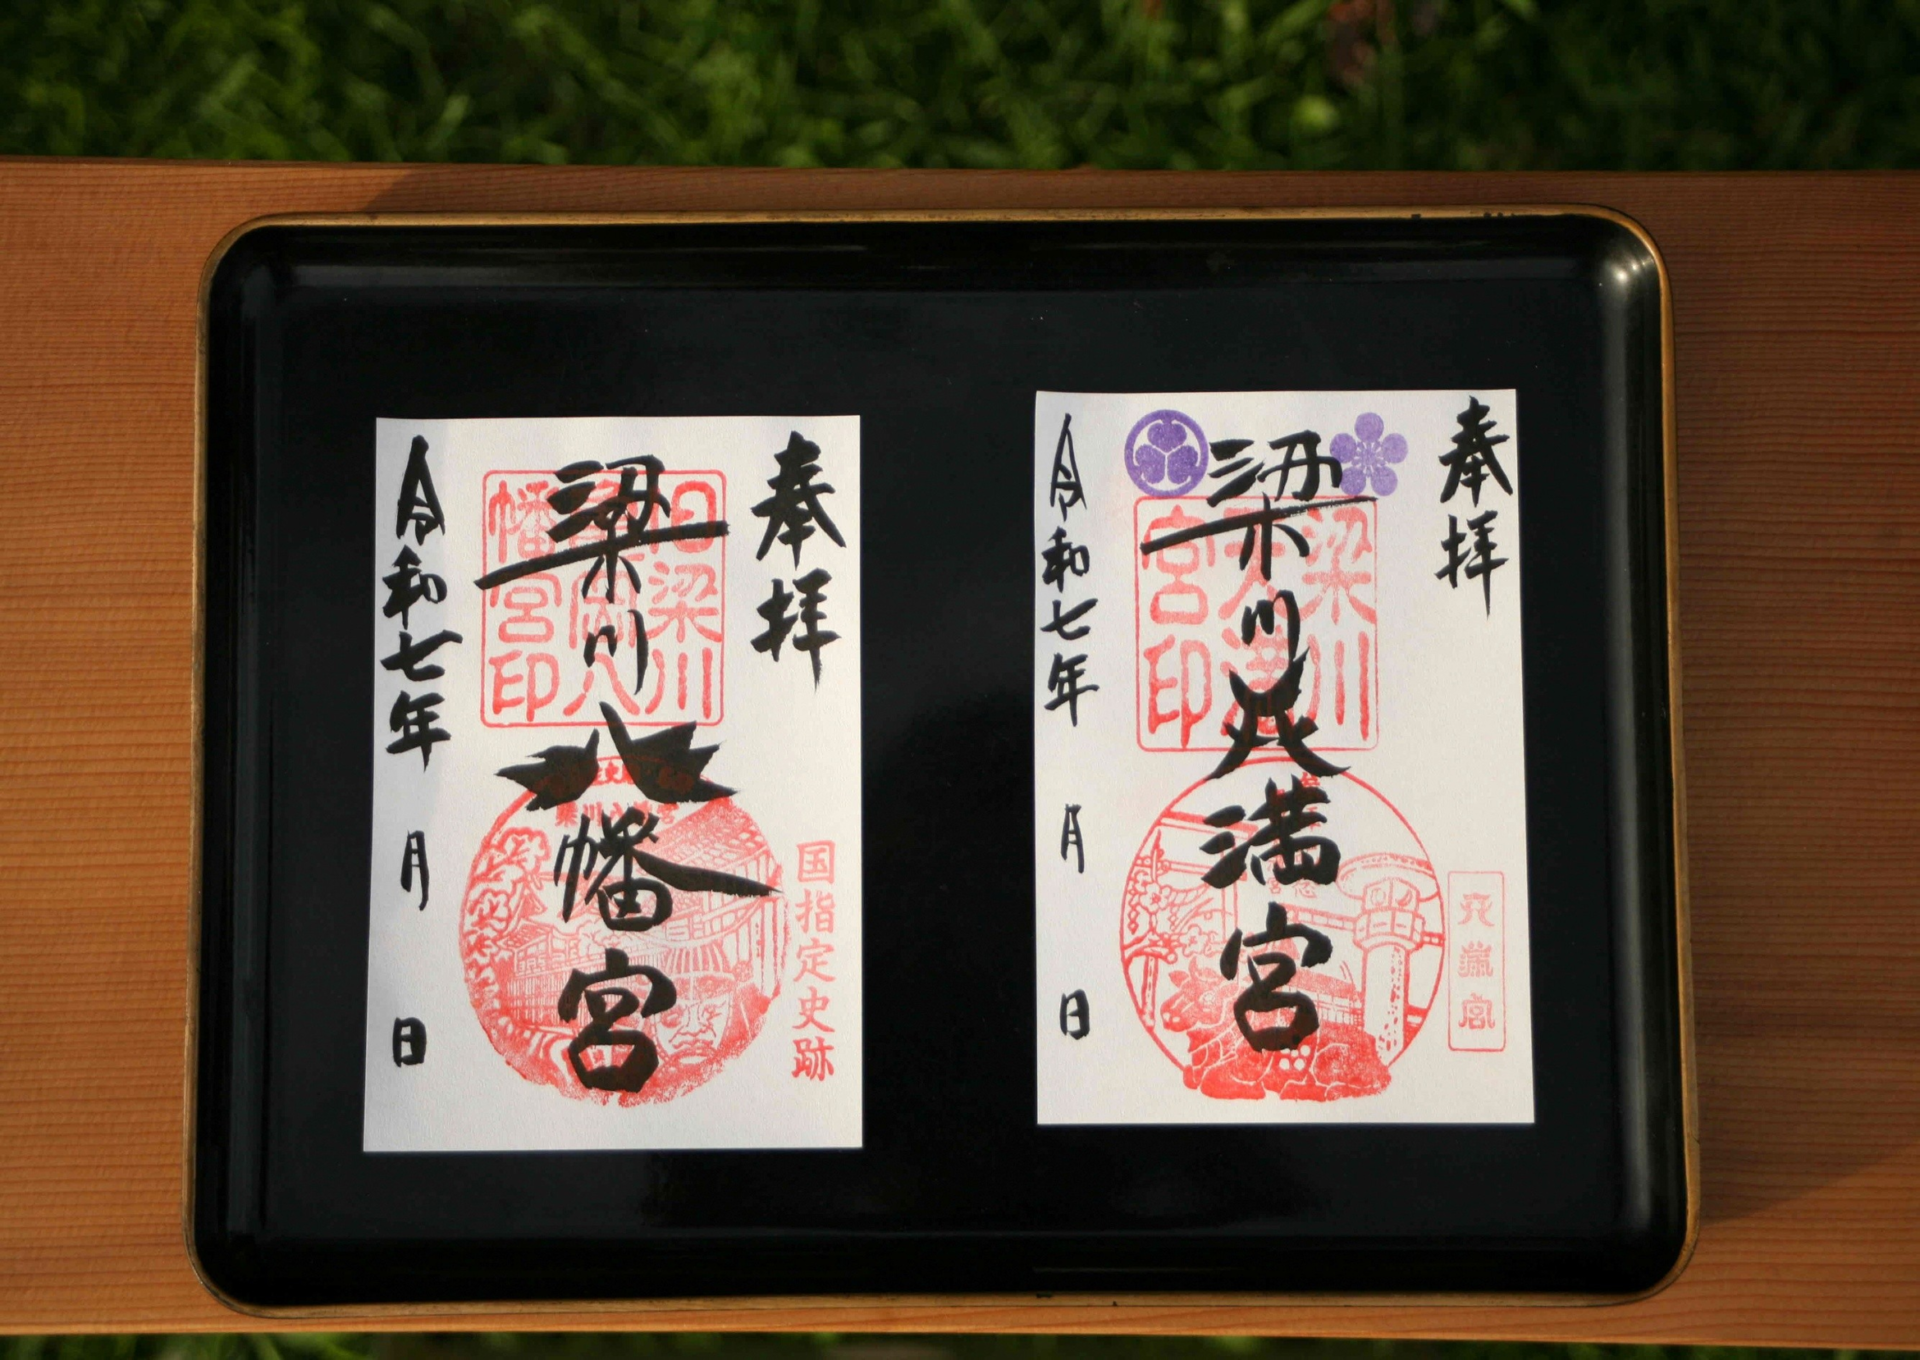 奉拝
梁川八幡宮
令和七年 月 日
旧梁川
亀岡八
幡宮印
国指定史跡
奉拝
梁川天満宮
令和七年 月 日
梁川
天満
宮印
天満宮